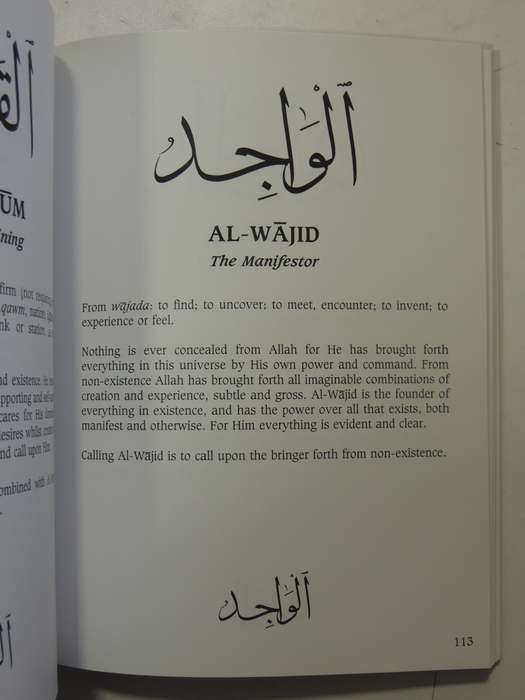 ŪM
firm (not
qawm, nation
or station
existence. He
and
cares for His
whilst
call upon Him
with
اَلْوَاجِدُ
AL-WĀJID
The Manifestor
From wājada: to find; to uncover; to meet, encounter; to invent; to
experience or feel.
Nothing is ever concealed from Allah for He has brought forth
everything in this universe by His own power and command. From
non-existence Allah has brought forth all imaginable combinations of
creation and experience, subtle and gross. Al-Wājid is the founder of
everything in existence, and has the power over all that exists, both
manifest and otherwise. For Him everything is evident and clear.
Calling Al-Wājid is to call upon the bringer forth from non-existence.
اَلْوَاجِدُ
113